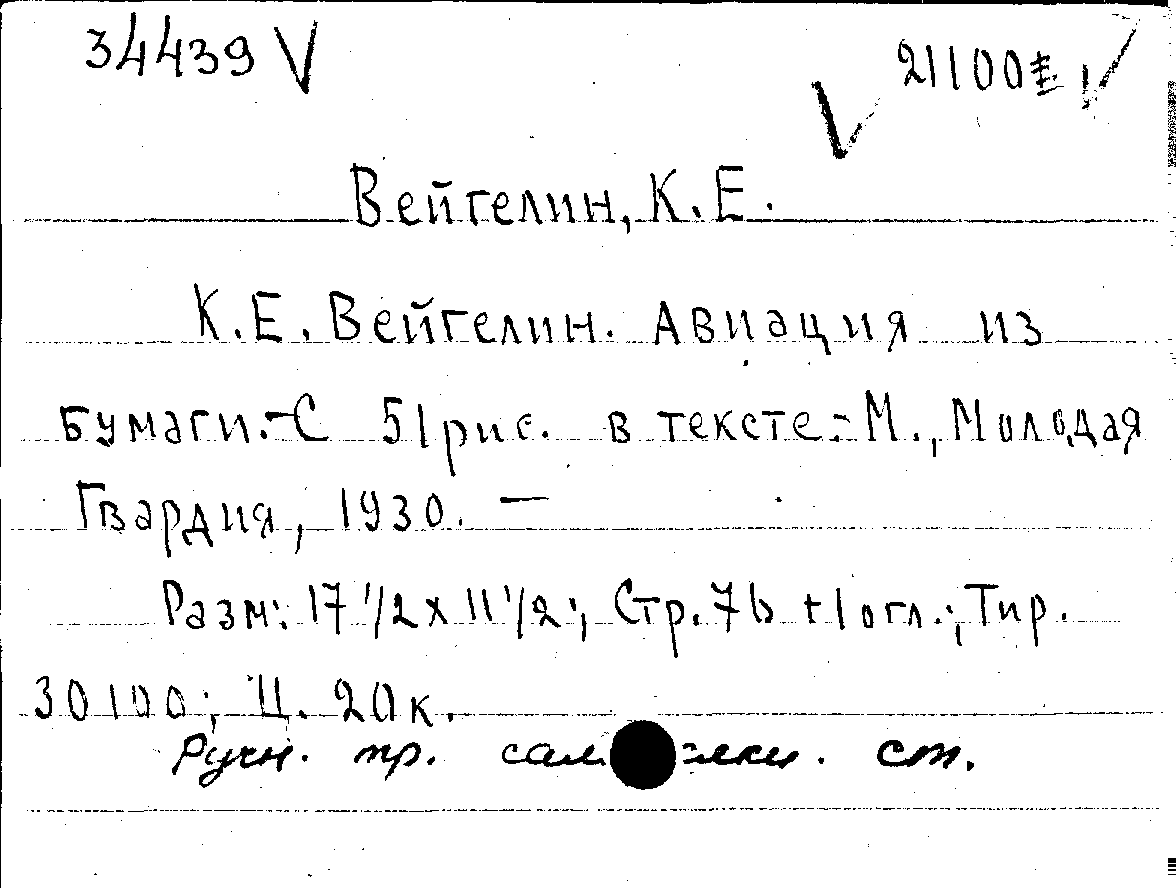 34439 V
21100
Вейгелин, К.Е.
К.Е. Вейгелин. Авиация из
бумаги.-С 51 рис. в тексте.-М., Молодая
Гвардия, 1930. —
Разм: 17 1/2 х 11 1/2; Стр. 76 +1 огл.; Тир.
30100; Ц. 20к.
Ручн. тр. ст.